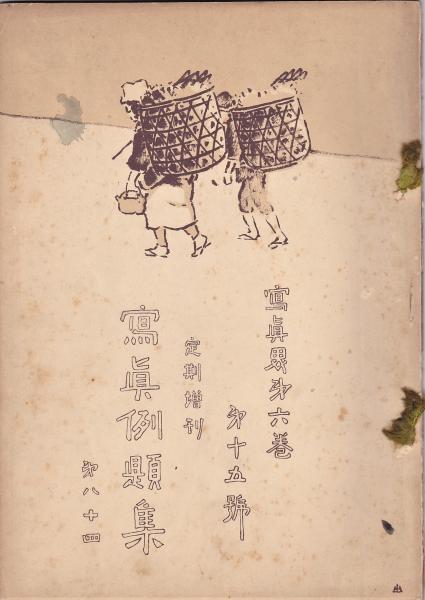 寫眞界第六巻
第十五號
定期増刊
寫眞例題集
第八十四